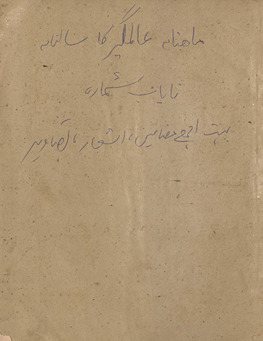 ماھنامہ عالمگیر کا سالنامہ
نایاب شمارہ
بہت اچھے مضامین، اشعار، تصاویر